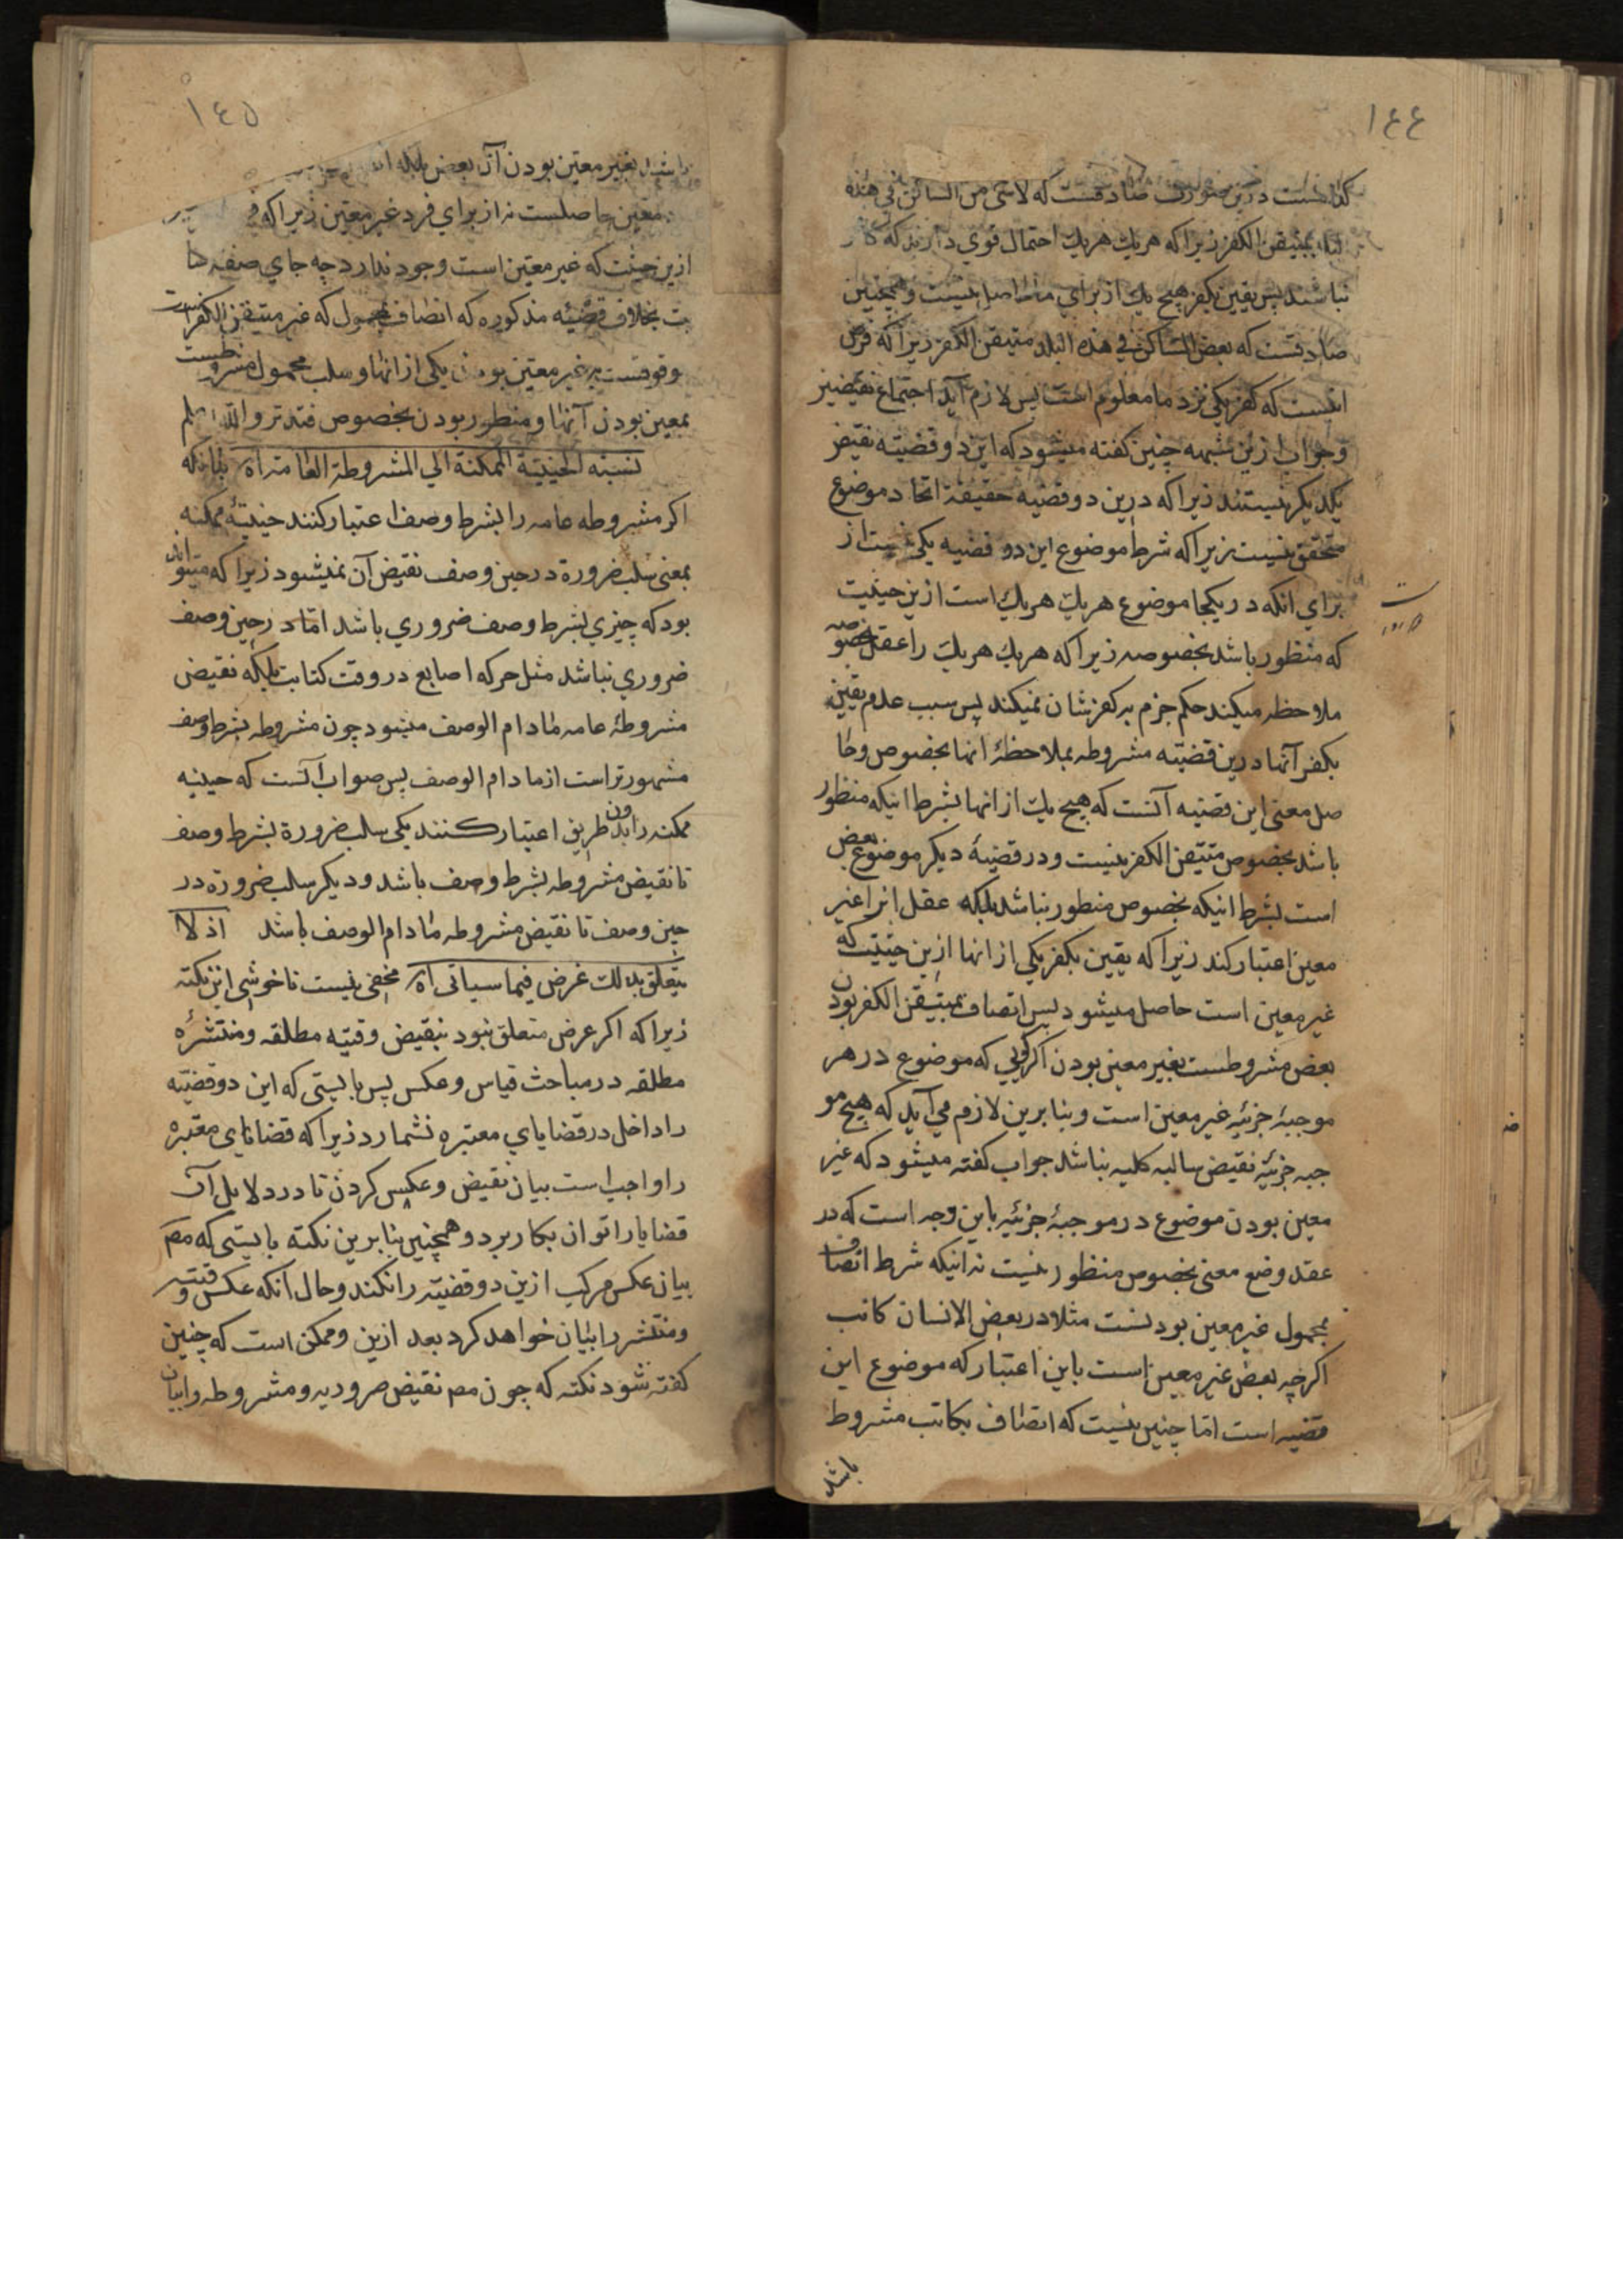 ١٤٤
كدام است درین صورت صادقست که لاشئ من الساکن فی هذه
البلد بمتیقن الکفر زیرا که هر یك هر یك احتمال قوی دارند که کافر
نباشند پس یقین بکفر هیچ یك از برای ما حاصل نیست وهمچنین
صادقست که بعض الساکن فی هذه البلد متیقن الکفر زیرا که فرض
انست که کفر یکی نزد ما معلوم است پس لازم آید اجتماع نقیضین
وجواب ازین شبهه چنین کفته میشود که این دو قضیه نقیض
یکدیکر نیستند زیرا که درین دو قضیه حقیقة اتحاد موضوع
متحقق نیست زیرا که شرط موضوع این دو قضیه یکی نیست از
برای انکه در یکجا موضوع هر یك هر یك است ازین حیثیت
که منظور باشد بخصوصه زیرا که هر یك هر یك را عقل بخصوصه
ملاحظه میکند حکم جزم بر کفرشان نمیکند پس سبب عدم یقین
بکفر آنها درین قضیه مشروطه بملاحظهٔ انها بخصوص وحا
صل معنی این قضیه آنست که هیچ یك از انها بشرط اینکه منظور
باشد بخصوص متیقن الکفر نیست ودر قضیهٔ دیکر موضوع بعض
است بشرط اینکه بخصوص منظور نباشد بلکه عقل انرا غیر
معین اعتبار کند زیرا که یقین بکفر یکی از انها ازین حیثیت که
غیر معین است حاصل میشود پس اتصاف بمتیقن الکفر بودن
بعض مشروطست بغیر معین بودن اکر کویی که موضوع در هر
موجبهٔ جزئیه غیر معین است وبنا برین لازم می آید که هیچ مو
جبه جزئیه نقیض سالبه کلیه نباشد جواب کفته میشود که غیر
معین بودن موضوع در موجبهٔ جزئیه باین وجه است که در
عقد وضع معنی بخصوص منظور نیست نه اینکه شرط اتصاف
بمحمول غیر معین بودنست مثلا در بعض الانسان کاتب
اکرچه بعض غیر معین است باین اعتبار که موضوع این
قضیه است اما چنین نیست که اتصاف بکاتب مشروط
باشد
١٤٥
باشد بغیر معین بودن آن بعض بلکه
معین حاصلست نه از برای فرد غیر معین زیرا که
ازین حیثیت که غیر معین است وجود ندارد چه جای صفه کتا
بت بخلاف قضیه مذکوره که اتصاف بمحمول که غیر متیقن الکفر است
موقوفست بر غیر معین بودن یکی از انها وسلب محمول مشروطست
بمعین بودن آنها ومنظور بودن بخصوص فتدبر والله اعلم
نسبة الحینیة الممکنة الی المشروطة العامة اه بدانکه
اکر مشروطه عامه را بشرط وصف اعتبار کنند حینیهٔ ممکنه
بمعنی سلب ضرورة در حین وصف نقیض آن نمیشود زیرا که میتواند
بود که چیزی بشرط وصف ضروری باشد اما در حین وصف
ضروری نباشد مثل حرکه اصابع در وقت کتابت بلکه نقیض
مشروطهٔ عامه مادام الوصف میشود چون مشروطه بشرط وصف
مشهورتر است از مادام الوصف پس صواب آنست که حینیه
ممکنه را بدون طریق اعتبار کنند یکی سلب ضرورة بشرط وصف
تا نقیض مشروطه بشرط وصف باشد ودیکر سلب ضرورة در
حین وصف تا نقیض مشروطه مادام الوصف باشد اذ لا
یتعلق بذلك غرض فیما سیاتی اه مخفی نیست ناخوشی این نکته
زیرا که اکر غرض متعلق نبود بنقیض وقتیه مطلقه ومنتشرهٔ
مطلقه در مباحث قیاس وعکس پس بایستی که این دو قضیه
را داخل در قضایای معتبره نشمارد زیرا که قضایای معتبره
را واجب است بیان نقیض وعکس کردن تا در دلایل آن
قضایا را توان بکار برد وهمچنین بنا برین نکته بایستی که مص
بیان عکس مرکب ازین دو قضیه را نکند وحال آنکه عکس وقتیه
ومنتشر را بیان خواهد کرد بعد ازین وممکن است که چنین
کفته شود نکته که چون مص نقیض ضروریه ومشروطه را بیان